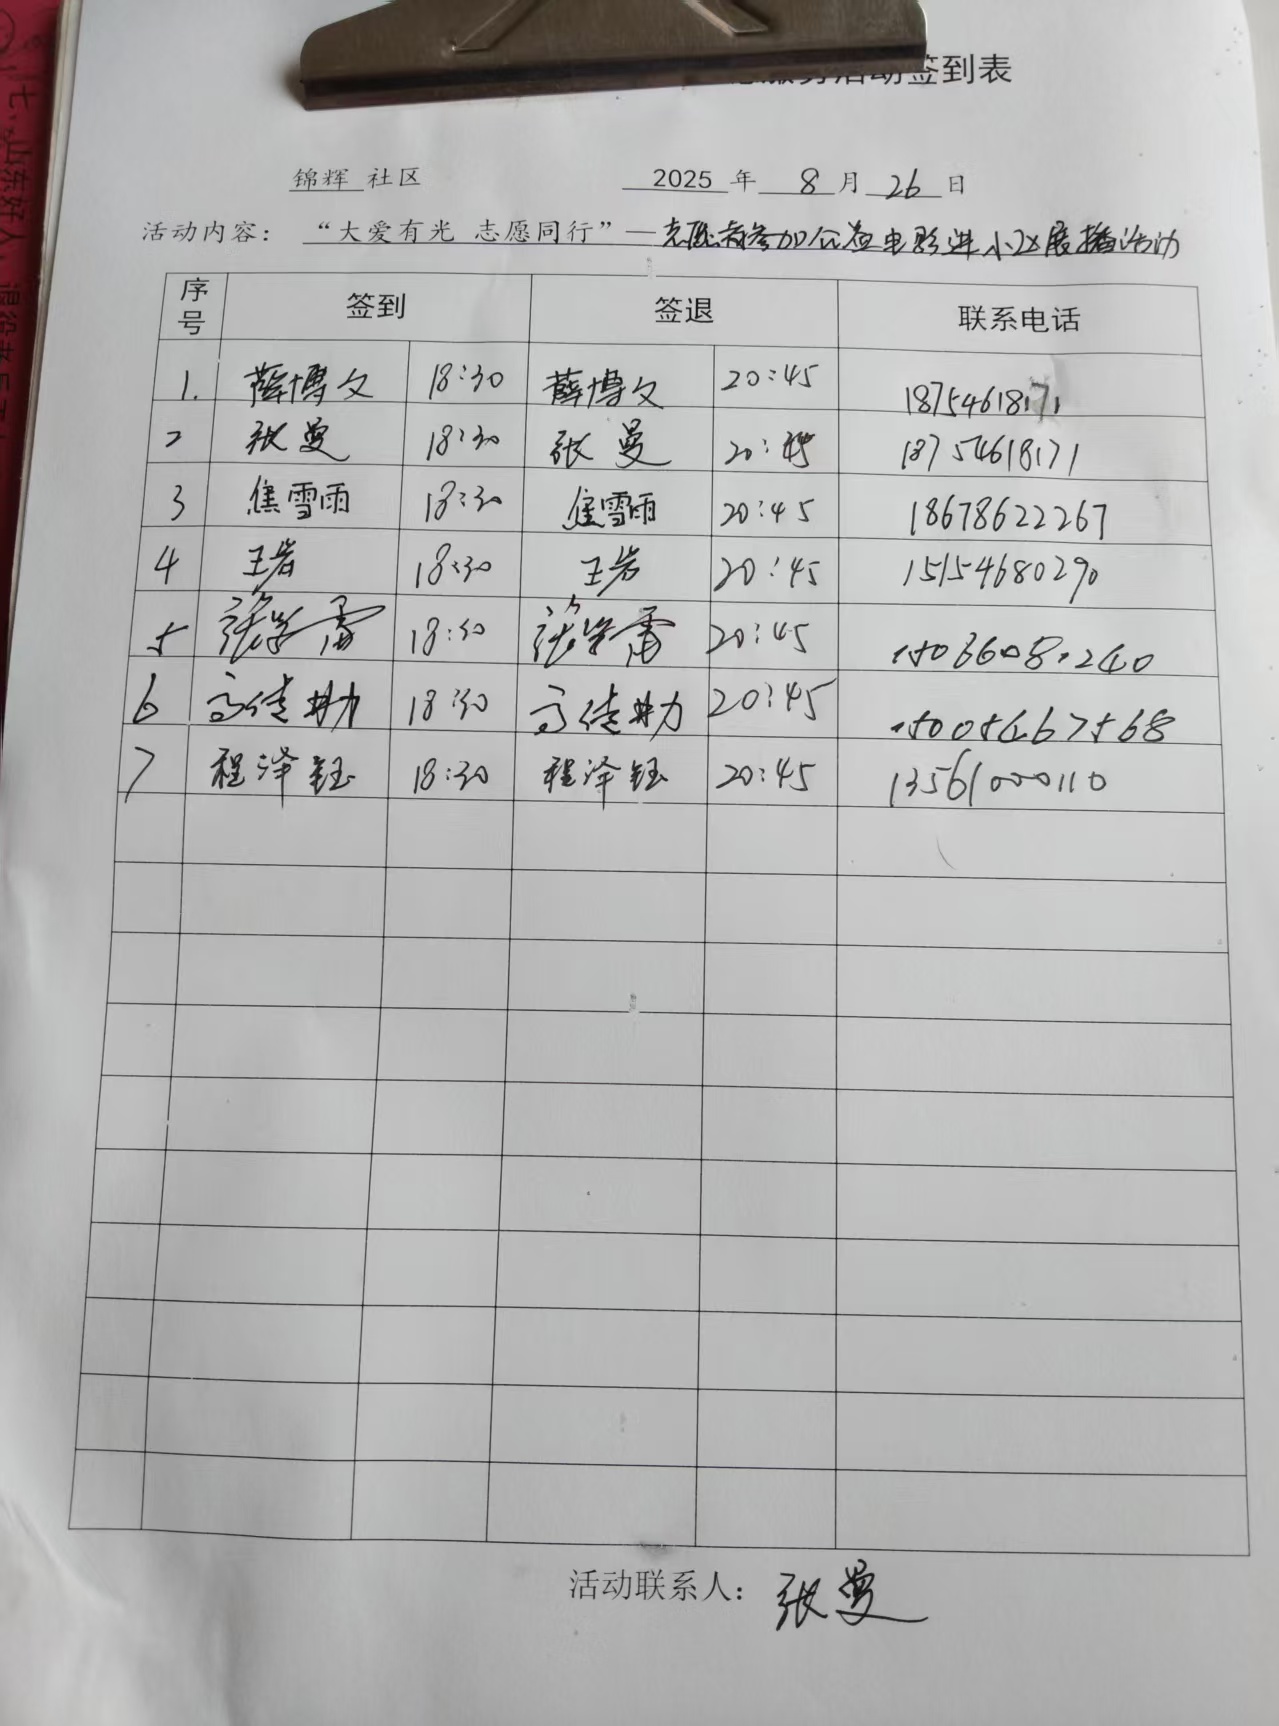 服务活动签到表
锦辉 社区 2025 年 8 月 26 日
活动内容： “大爱有光 志愿同行”—志愿者参加公益电影进小区展播活动
序号 签到 签退 联系电话
1. 薛博文 18:30 薛博文 20:45 18754618171
2 张曼 18:30 张曼 20:45 18754618171
3 焦雪雨 18:30 焦雪雨 20:45 18678622267
4 王岩 18:30 王岩 20:45 15154680290
5 张学雷 18:30 张学雷 20:45
6 18:30 20:45 15005667568
7 程泽钰 18:30 程泽钰 20:45 13561000110
活动联系人： 张曼